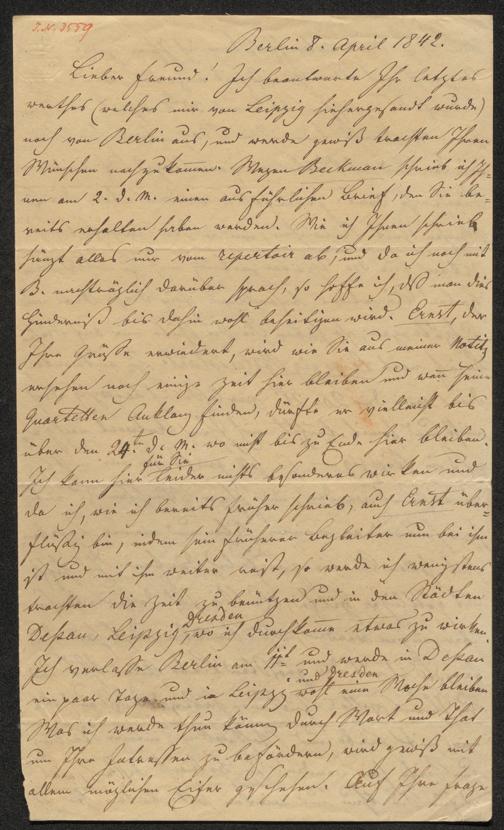 I.N. 3559
Berlin 8. April 1842.
Lieber Freund! Ich beantworte Ihr letztes
werthes (welches mir von Leipzig hiehergesandt wurde)
noch von Berlin aus, und werde gewiß trachten Ihren
Wünschen nachzukommen. Wegen Beckman schrieb ich Ih=
nen am 2. d. M. einen ausführlichen Brief, den Sie be=
reits erhalten haben werden. Wie ich Ihnen schrieb
hängt alles nur vom repertoir ab, und da ich noch mit
B. nachträglich darüber sprach, so hoffe ich, dß man dies
Hinderniß bis dahin wohl beseitigen wird. Ernst, der
Ihre Grüsse erwiedert, wird wie Sie aus meiner Notitz
ersehen noch einige Zeit hier bleiben und wenn seine
Quartetten Anklang finden, dürfte er vielleicht bis
über den 24t. d. M. wo nicht bis zu Ende hier bleiben.
für Sie
Ich kann hier leider nichts besonderes wirken und
da ich, wie ich bereits früher schrieb, auch Ernst über=
flüßig bin, indem sein früherer Begleiter nun bei ihm
ist und mit ihm weiter reist, so werde ich wenigstens
trachten die Zeit zu benützen und in den Städten
Dresden
Dessau, Leipzig, wo ich durchkomme etwas zu wirken.
Ich verlasse Berlin am 11t und werde in Dessau
und Dresden
ein paar Tage und in Leipzig wohl eine Woche bleiben
Was ich werde thun können durch Wort und That
um Ihre Interessen zu befördern, wird gewiß mit
allem möglichen Eifer geschehen. Auf Ihre Frage